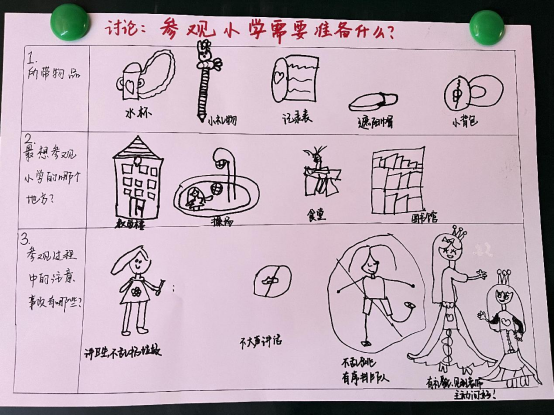 讨论：参观小学需要准备什么？
1.
所带物品
水杯
小礼物
记录表
遮阳帽
小背包
2.
最想参观
小学的哪个
地方？
教学楼
操场
食堂
图书馆
3.
参观过程
中的注意
事项有哪些？
讲卫生,不乱扔垃圾
不大声讲话
不乱跑
有序排队
有礼貌,见到老师
主动问好！